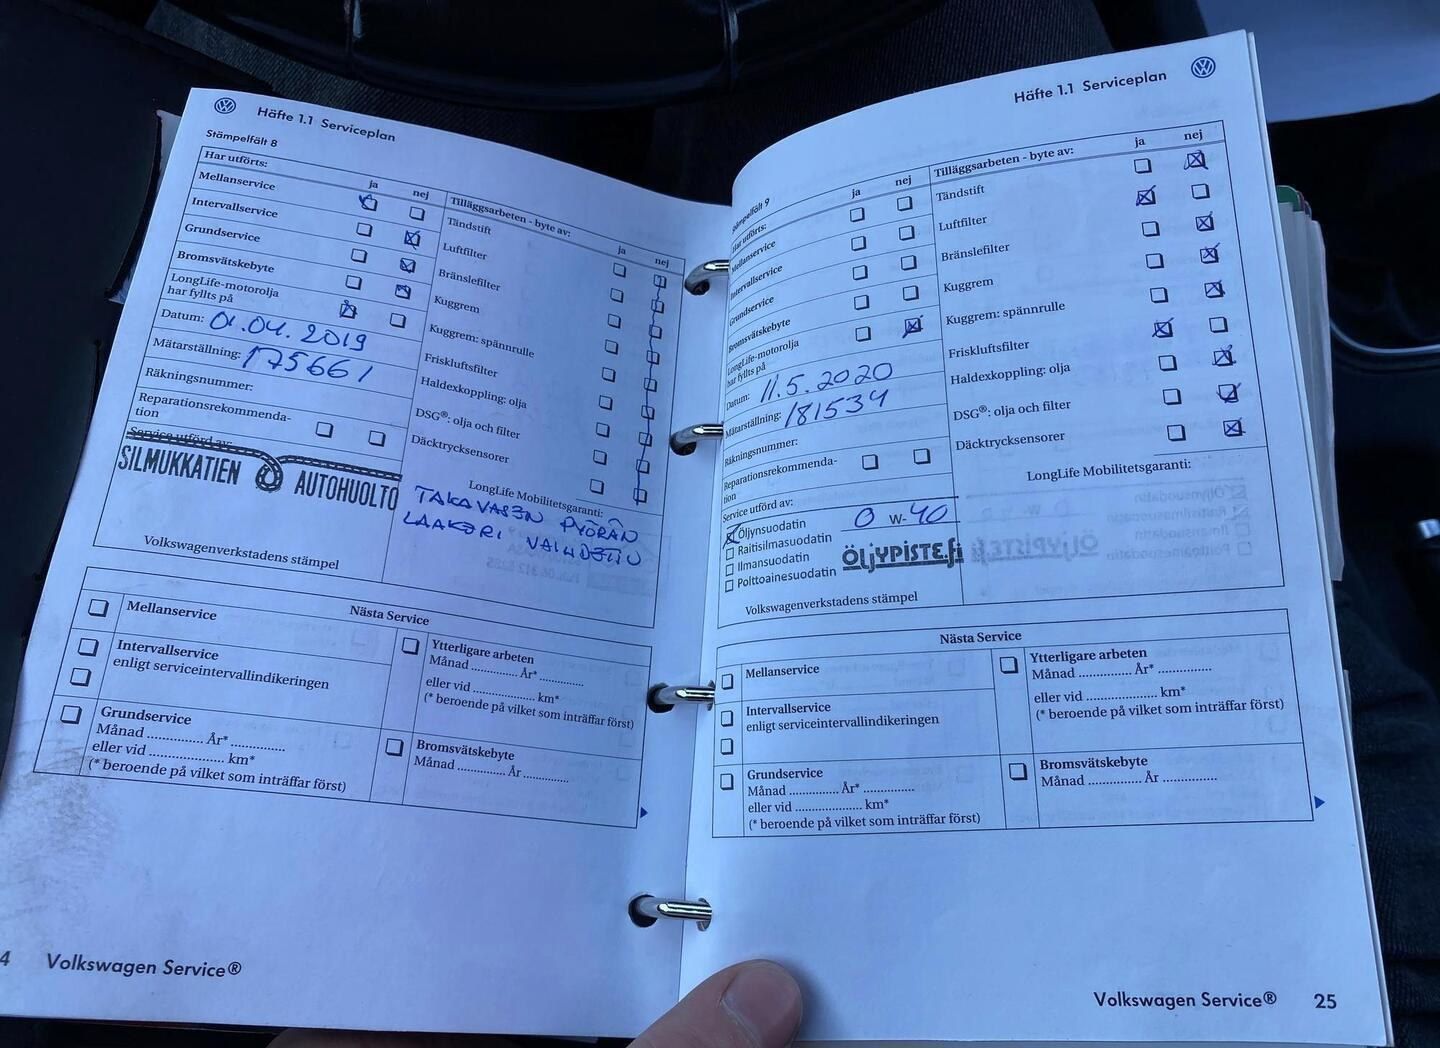 Häfte 1.1 Serviceplan
Stämpelfält 8
Har utförts: ja nej
Mellanservice
Intervallservice
Grundservice
Bromsvätskebyte
LongLife-motorolja
har fyllts på
Datum: 01.04.2019
Mätarställning: 175661
Räkningsnummer:
Reparationsrekommenda-
tion
Service utförd av:
SILMUKKATIEN AUTOHUOLTO
Volkswagenverkstadens stämpel
Tilläggsarbeten - byte av: ja nej
Tändstift
Luftfilter
Bränslefilter
Kuggrem
Kuggrem: spännrulle
Friskluftsfilter
Haldexkoppling: olja
DSG®: olja och filter
Däcktrycksensorer
LongLife Mobilitetsgaranti:
TAKAVASEN PYÖRÄN
LAAKERI VAIHDETTU
Nästa Service
Mellanservice
Intervallservice
enligt serviceintervallindikeringen
Grundservice
Månad .............. År* ..............
eller vid ................... km*
(* beroende på vilket som inträffar först)
Ytterligare arbeten
Månad ............ År* ............
eller vid ................... km*
(* beroende på vilket som inträffar först)
Bromsvätskebyte
Månad ............ År ............
4 Volkswagen Service®
Häfte 1.1 Serviceplan
Stämpelfält 9
Har utförts: ja nej
Mellanservice
Intervallservice
Grundservice
Bromsvätskebyte
LongLife-motorolja
har fyllts på
Datum: 11.5.2020
Mätarställning: 181534
Räkningsnummer:
Reparationsrekommenda-
tion
Service utförd av:
Öljynsuodatin 0 W-40
Raitisilmasuodatin
Ilmansuodatin
Polttoainesuodatin
ÖLJYPISTE.fi
Volkswagenverkstadens stämpel
Tilläggsarbeten - byte av: ja nej
Tändstift
Luftfilter
Bränslefilter
Kuggrem
Kuggrem: spännrulle
Friskluftsfilter
Haldexkoppling: olja
DSG®: olja och filter
Däcktrycksensorer
LongLife Mobilitetsgaranti:
Nästa Service
Mellanservice
Intervallservice
enligt serviceintervallindikeringen
Grundservice
Månad .............. År* ..............
eller vid ................... km*
(* beroende på vilket som inträffar först)
Ytterligare arbeten
Månad ............ År* ..............
eller vid ................... km*
(* beroende på vilket som inträffar först)
Bromsvätskebyte
Månad ............ År ..............
Volkswagen Service® 25